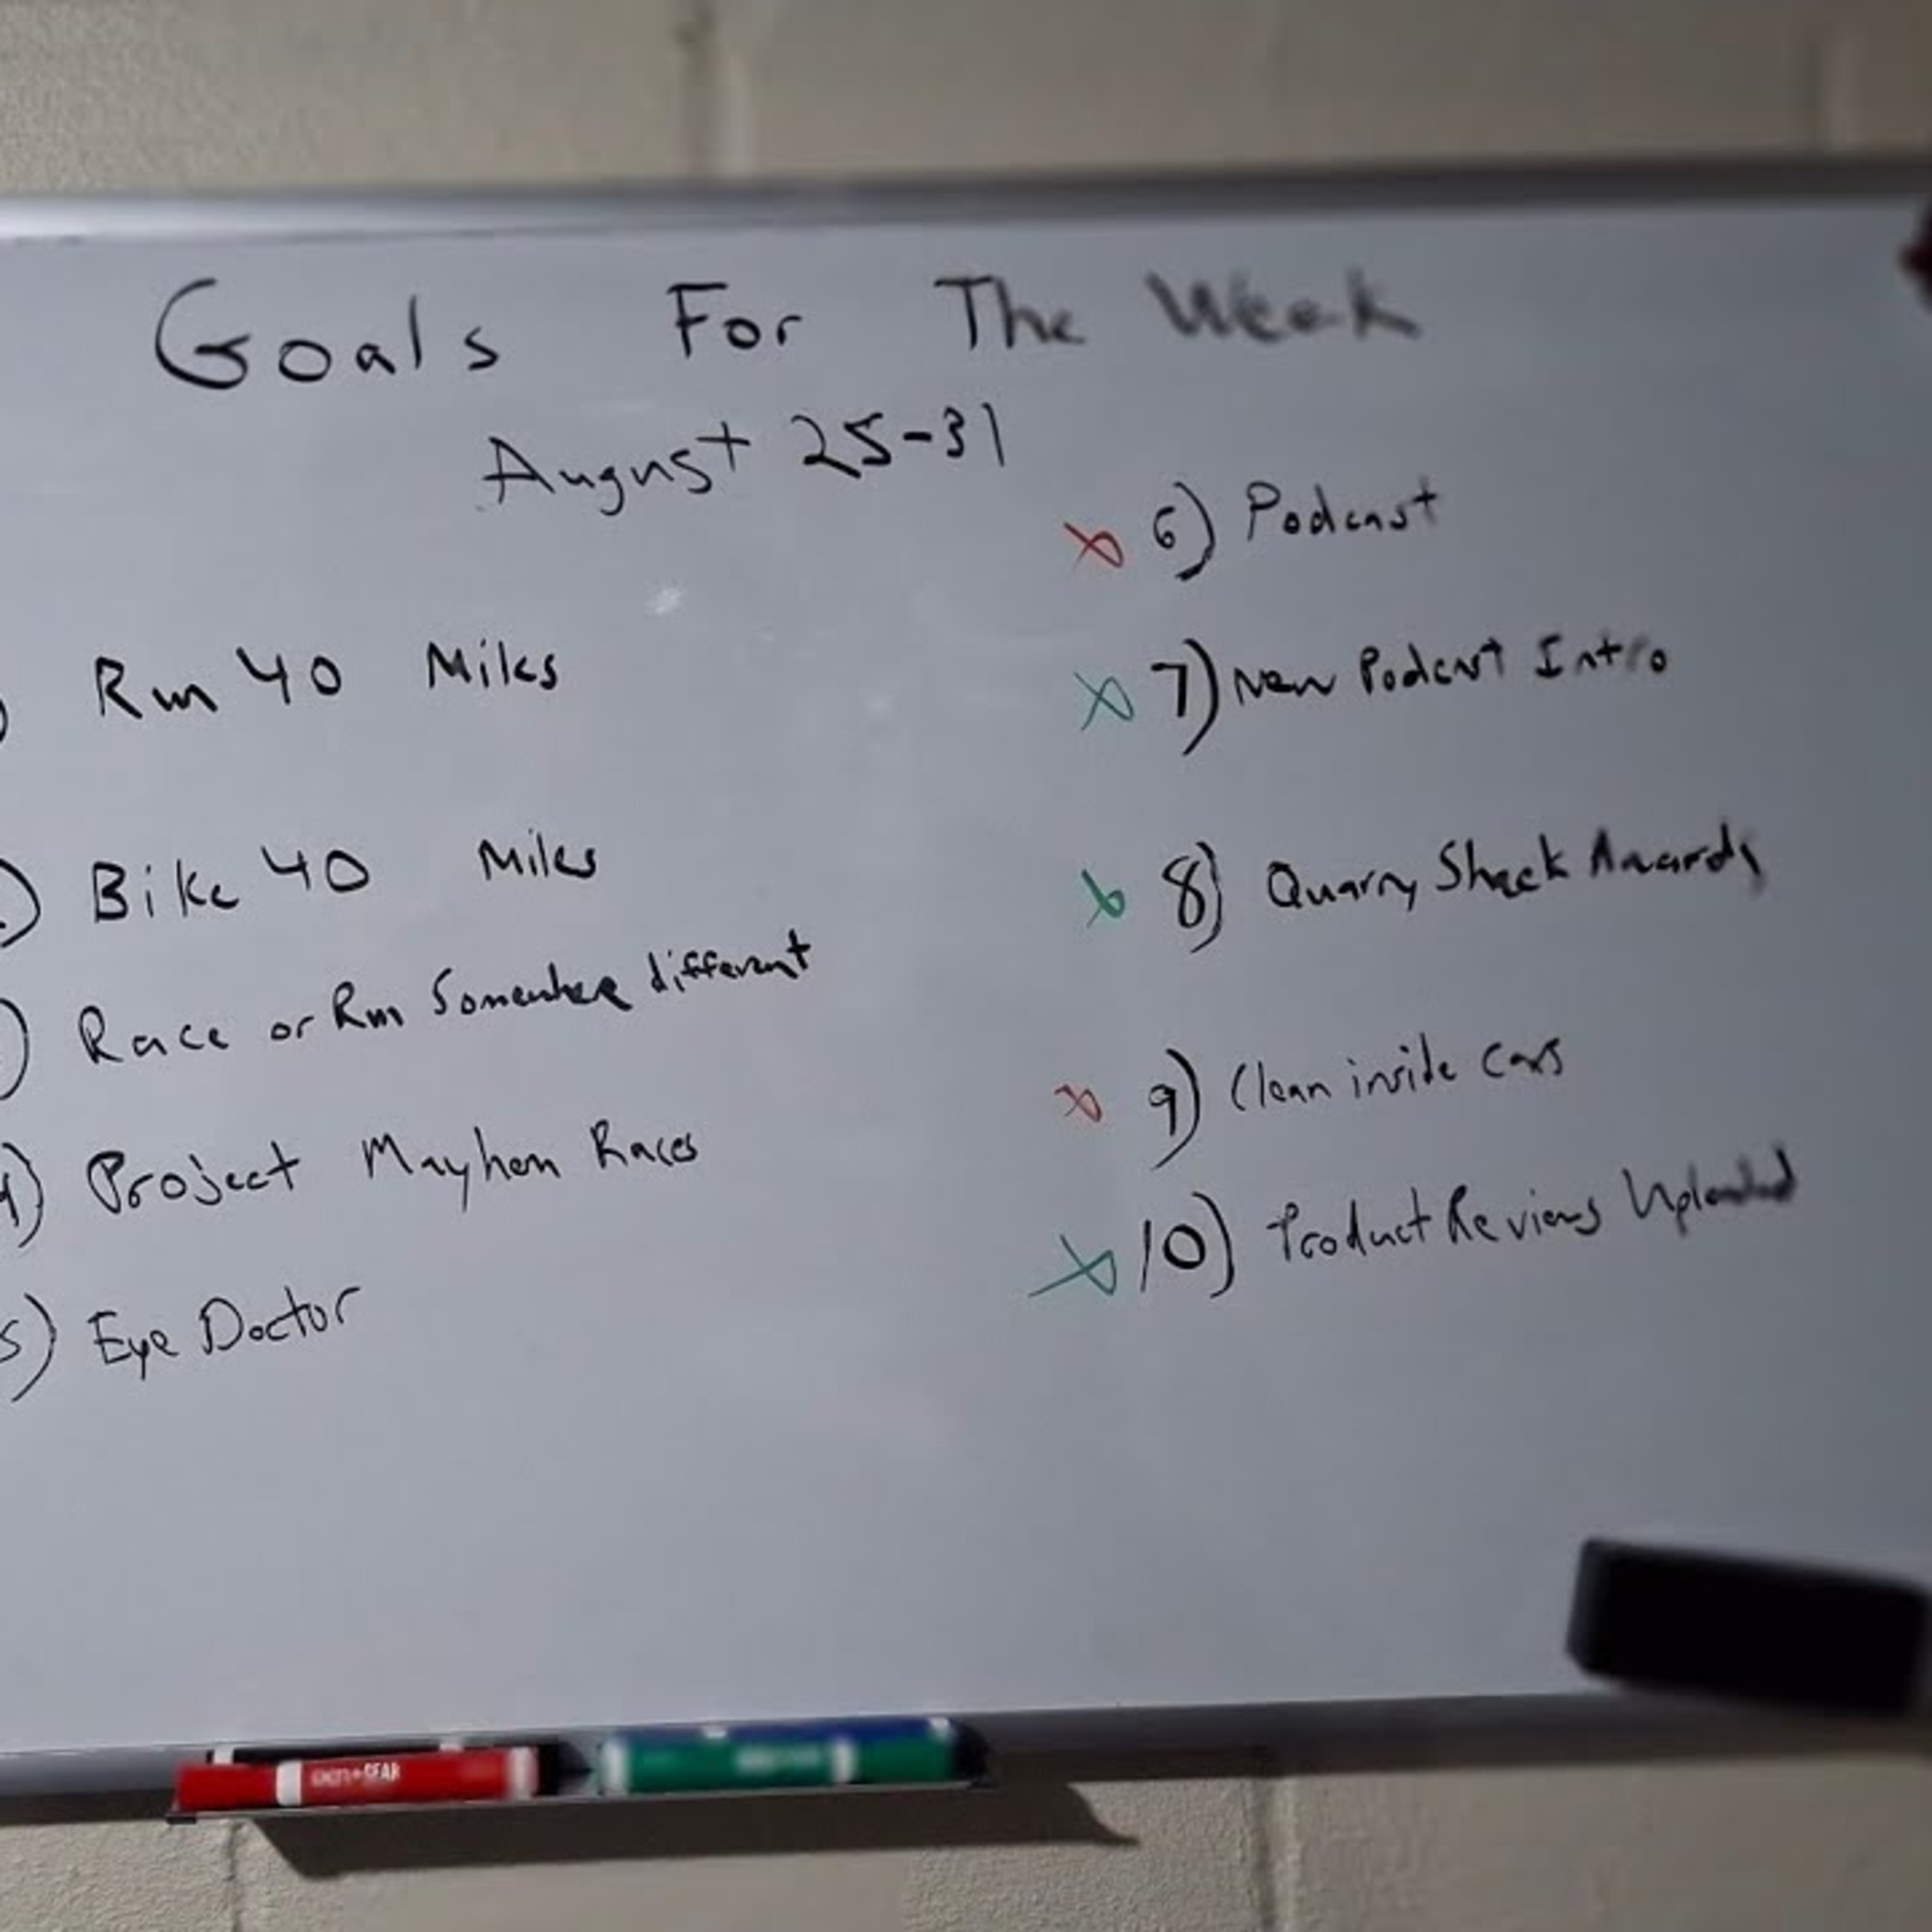 Goals For The Week
August 25-31
) Run 40 Miles
) Bike 40 Miles
) Race or Run Somewhere different
4) Project Mayhem Races
5) Eye Doctor
X 6) Podcast
X 7) New Podcast Intro
X 8) Quarry Shack Awards
X 9) Clean inside cars
X 10) Product Reviews Uploaded
GEAR